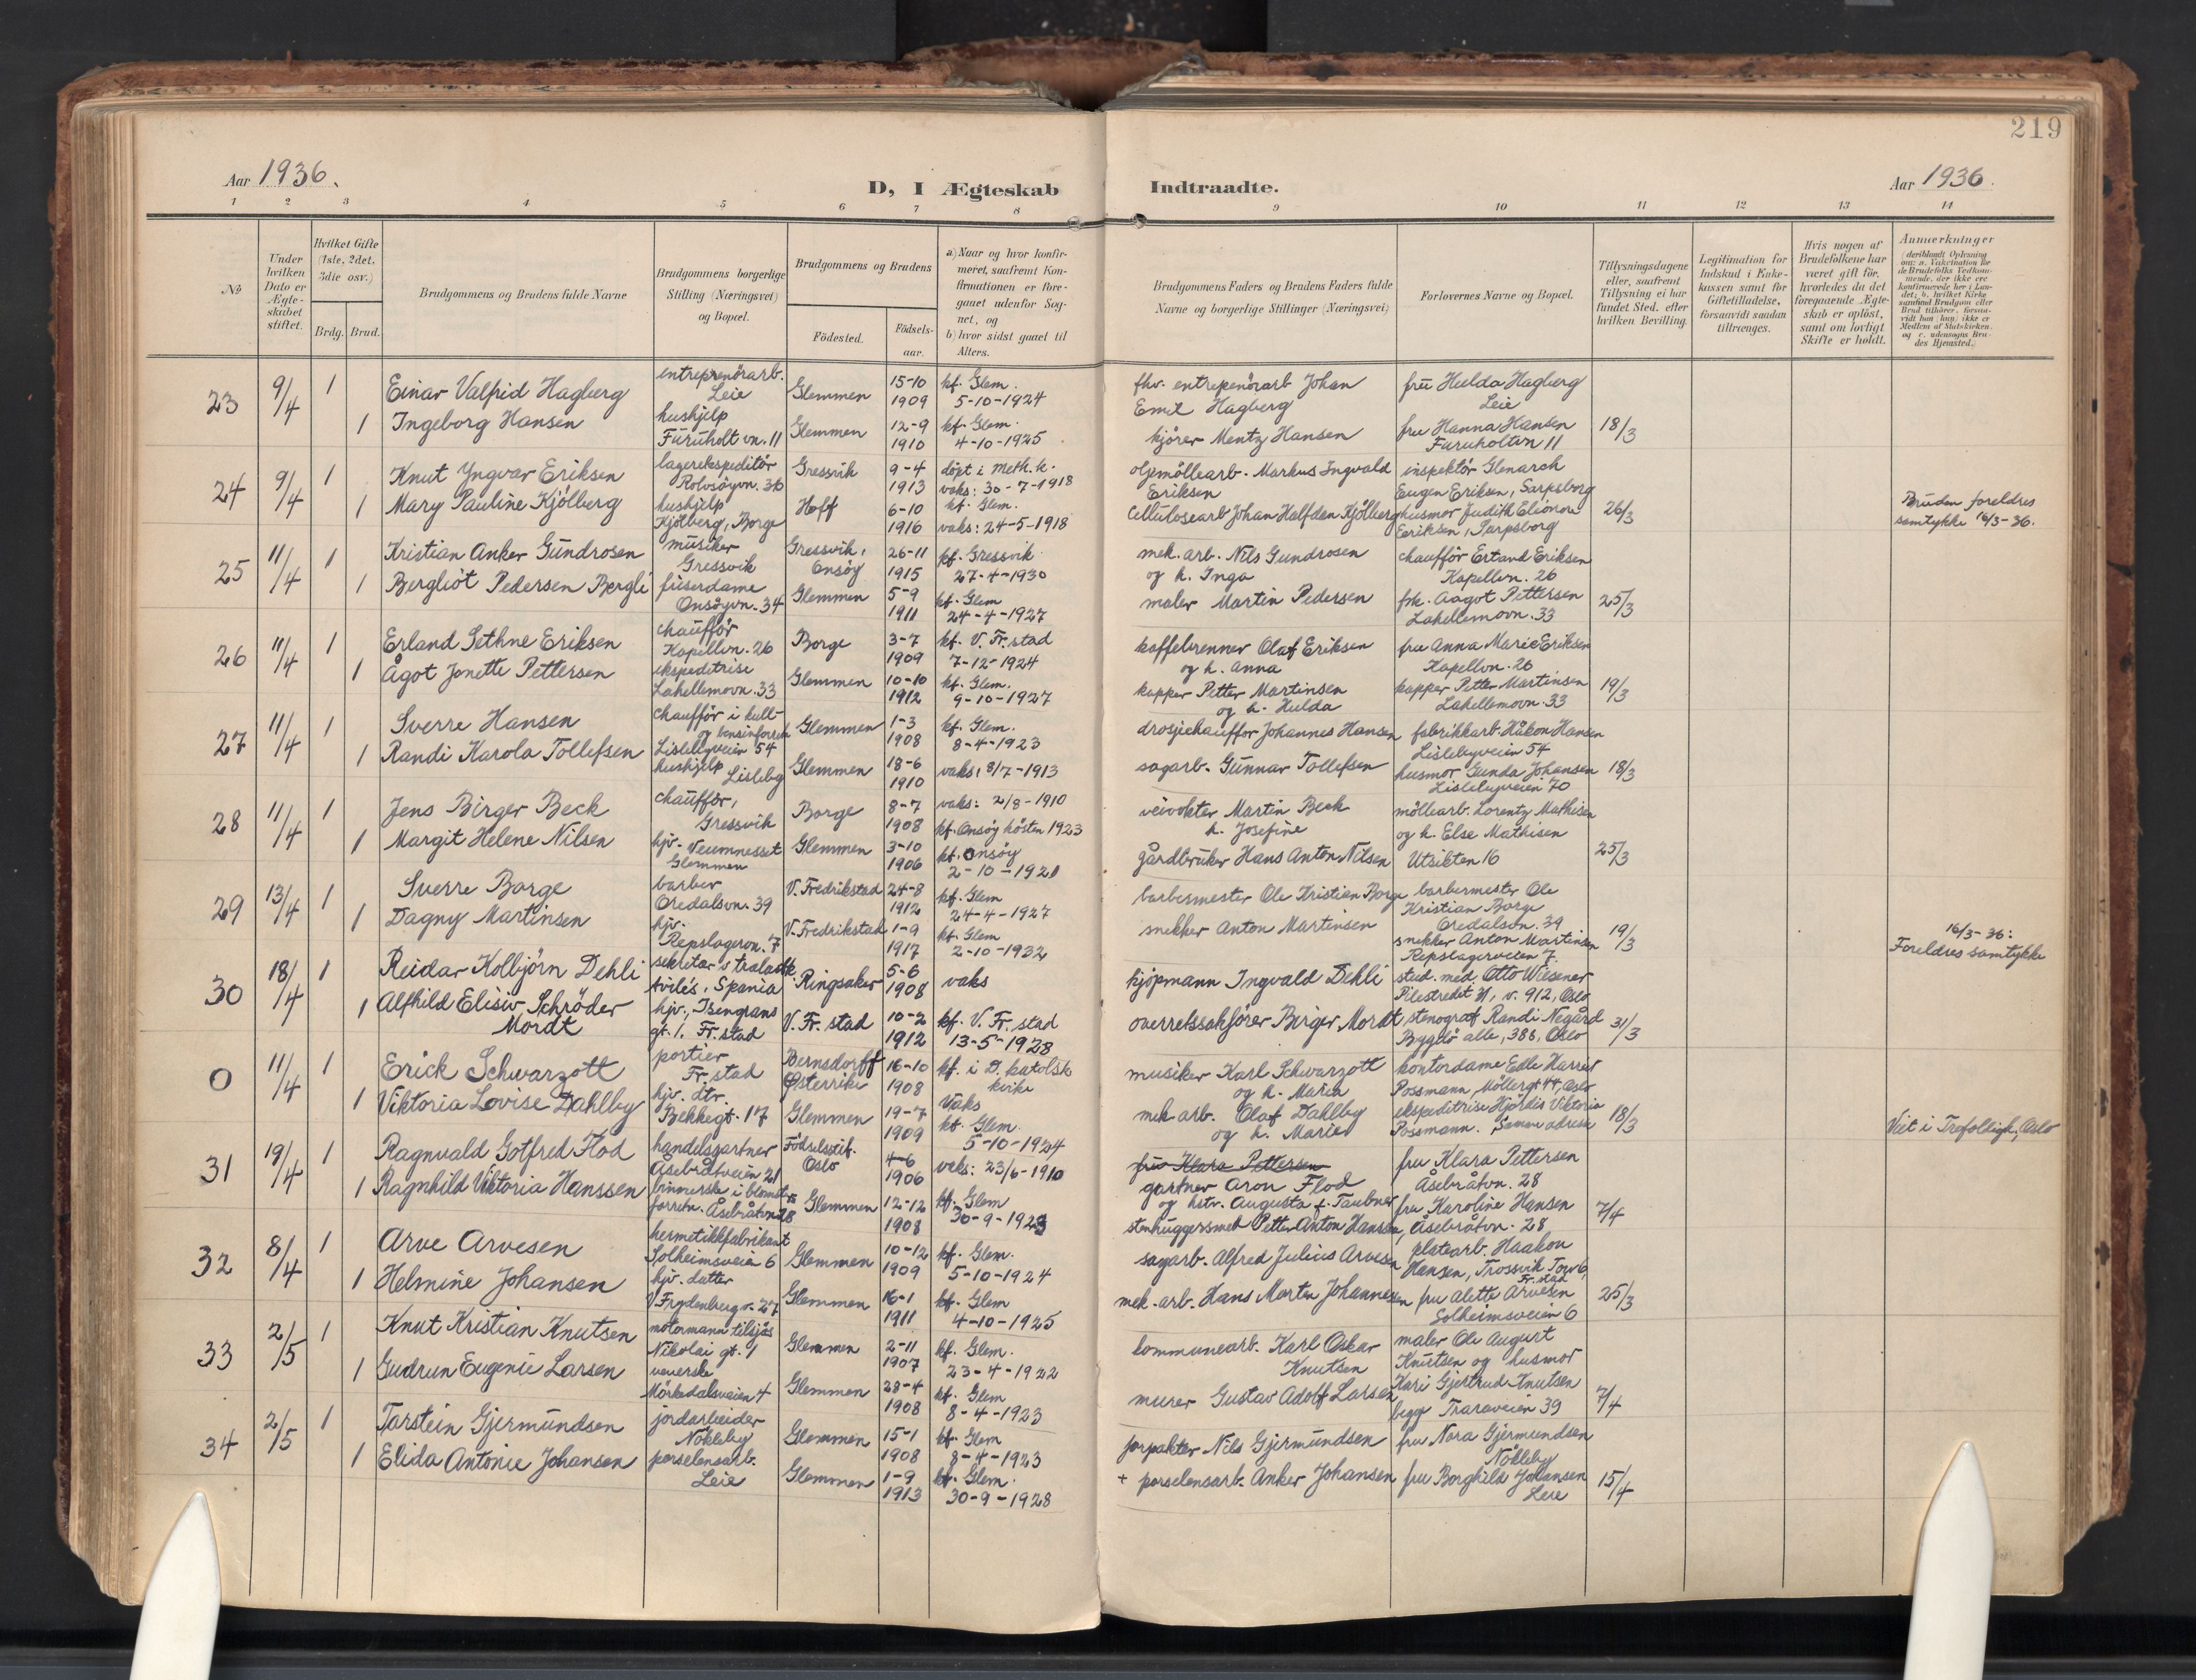 219
Aar 1936.
D, I Ægteskab
Indtraadte.
Aar 1936.
1 2 3 4 5 6 7 8 9 10 11 12 13 14
No
Under hvilken Dato er Ægte-skabet stiftet.
Hvilket Gifte (1ste, 2det, 3die osv.)
Brdg. Brud.
Brudgommens og Brudens fulde Navne
Brudgommens borgerlige Stilling (Næringsvei) og Bopæl.
Brudgommens og Brudens
Födested.
Födsels-aar.
a) Naar og hvor konfir-meret, saafremt Kon-firmationen er fore-gaaet udenfor Sog-net, og
b) hvor sidst gaaet til Alters.
Brudgommens Faders og Brudens Faders fulde Navne og borgerlige Stillinger (Næringsvei)
Forlovernes Navne og Bopæl.
Tillysningsdagene eller, saafremt Tillysning ei har fundet Sted, efter hvilken Bevilling.
Legitimation for Indskud i Enke-kassen samt for Giftetilladelse, forsaavidt saadan tiltrænges.
Hvis nogen af Brudefolkene har været gift för, hvorledes da det foregaaende Ægte-skab er oplöst, samt om lovligt Skifte er holdt.
Anmærkninger
(deriblandt Oplysning om: a. Vakcination for de Brudefolks Vedkom-mende, der ikke ere konfirmerede her i Lan-det; b. hvilket Kirke-samfund Brudgom eller Brud tilhörer, forsaa-vidt han (hun) ikke er Medlem af Statskirken, og c. udensogns Bru-des Hjemsted.)
23 9/4 1 Einar Valfrid Hagberg entreprenörarb. Leie Glemmen 15-10 1909 kf. Glem. 5-10-1924 fhv. entrepenörarb Johan Emil Hagberg fru Hulda Hagberg Leie
1 Ingeborg Hansen hushjelp Furuholt vn. 11 Glemmen 12-9 1910 kf. Glem. 4-10-1925 kjörer Mentz Hansen fru Hanna Hansen Furuholtvn 11 18/3
24 9/4 1 Knut Yngvar Eriksen lagerekspeditör Rolvsöyvn. 36 Gressvik 9-4 1913 döpt i Meth. k. vaks: 30-7-1918 oljemöllearb. Markus Ingvald Eriksen inspektör Glenarch Eugen Eriksen, Sarpsborg
1 Mary Pauline Kjölberg hushjelp Kjölberg, Borge Hoff 6-10 1916 kf. Glem. vaks: 24-5-1918 Cellulosearb Johan Halfdan Kjölberg husmor Judith Eleonore Eriksen, Sarpsborg 26/3 Bruden foreldres samtykke 16/3-36.
25 11/4 1 Kristian Anker Gundrosen musiker Gressvik Gressvik, Onsöy 26-11 1915 kf. Gressvik 27-4-1930 mek. arb. Nils Gundrosen og h. Inga chaufför Erland Eriksen Kapellvn. 26
1 Bergliot Pedersen Berglé friserdame Onsöyvn. 34 Glemmen 5-9 1911 kf. Glem 24-4-1927 maler Martin Pedersen frk. Aagot Pettersen Lahellemovn. 33 25/3
26 11/4 1 Erland Sethne Eriksen chaufför Kapellvn. 26 Borge 3-7 1909 kf. V. Fr.stad 7-12-1924 kaffebrenner Olaf Eriksen og h. Anna fru Anna Marie Eriksen Kapellvn. 26
1 Ågot Jonette Pettersen ekspeditrise Lahellemovn. 33 Glemmen 10-10 1912 kf. Glem. 9-10-1927 kapper Petter Martinsen og h. Hulda kapper Petter Martinsen Lahellemovn. 33 19/3
27 11/4 1 Sverre Hansen chaufför i kull- og bensinforretn Lislebyveien 54 Glemmen 1-3 1908 kf. Glem. 8-4-1923 drosjechauffor Johannes Hansen fabrikkarb. Håkon Hansen Lislebyveien 54
1 Randi Karola Tollefsen hushjelp Lisleby Glemmen 18-6 1910 vaks: 8/7-1913 sagarb. Gunnar Tollefsen husmor Gunda Johansen Lislebyveien 70 18/3
28 11/4 1 Jens Birger Beck chaufför, Gressvik Borge 8-7 1908 vaks: 2/8-1910 kf. Onsöy hösten 1923 veivokter Martin Beck h. Josefine möllearb. Lorentz Mathisen og h. Else Mathisen
1 Margit Helene Nilsen hjv. Veumnesset Glemmen Glemmen 3-10 1906 kf. Onsöy 2-10-1921 gårdbruker Hans Anton Nilsen Utsikten 16 25/3
29 13/4 1 Sverre Borge barber Oredalsvn. 39 V. Fredrikstad 24-8 1912 kf. Glem 24-4-1927 barbermester Ole Kristian Borge barbermester Ole Kristian Borge Oredalsvn. 39
1 Dagny Martinsen hjv. Repslagervn. 7 V. Fredrikstad 1-9 1917 kf. Glem 2-10-1932 snekker Anton Martinsen snekker Anton Martinsen Repslagerveien 7. 19/3 16/3-36: Foreldres samtykke
30 18/4 1 Reidar Kolbjörn Dehli sekretær Avilés, Spania Ringsaker 5-6 1908 vaks kjöpmann Ingvald Dehli stud. med. Otto Wiesener Pilestredet 31, v. 912, Oslo
1 Alfhild Elisiv Schröder Mordt hjv., Isengrans gt. 1, Fr.stad V. Fr. stad 10-2 1912 kf. V. Fr. stad 13-5-1928 overretssakförer Birger Mordt stenograf Randi Negård Bygdö alle, 38b, Oslo 31/3
0 11/4 1 Erick Schwarzott portier Fr. stad Bernsdorff Österrike 16-10 1908 kf. i D. katolsk kirke musiker Karl Schwarzott og h. Maria kontordame Edle Harriet Possmann, Möllergt 44, Oslo
1 Viktoria Lovise Dahlby hjv. dtr. Bekkegt. 17 Glemmen 19-7 1909 Vaks kf. Glem. 5-10-1924 mek arb. Olaf Dahlby og h. Marie ekspeditrise Hjördis Viktoria Possmann. Samme adresse 18/3 Viet i Trefoldigh, Oslo
31 19/4 1 Ragnvald Gotfred Flod handelsgartner Åsebråtveien 21 Födselsstif. Oslo 4-6 1906 vaks: 23/6-1910 fru Klara Pettersen gartner Aron Flod og hstr. Augusta f. Taubner fru Klara Pettersen Åsebråtvn. 28
1 Ragnhild Viktoria Hanssen binnerske i blomsterforretn. Åsebråtvn 28 Glemmen 12-12 1908 kf. Glem 30-9-1923 stenhuggersmed Petter Anton Hansen, fru Karoline Hansen Åsebråtvn. 28 7/4
32 8/4 1 Arve Arvesen hermetikkfabrikant Solheimsveien 6 Glemmen 10-12 1909 kf. Glem. 5-10-1924 sagarb. Alfred Julius Arvesen platearb. Haakon Hansen, Trossvik Torv 6, Fr. stad
1 Helmine Johansen hjv. datter V Frydenbergv. 27 Glemmen 16-1 1911 kf. Glem 4-10-1925 mek. arb. Hans Martin Johannessen fru Alette Arvesen Solheimsveien 6 25/3
33 2/5 1 Knut Kristian Knutsen motormann tilsjös Nikolai gt. 1 Glemmen 2-11 1907 kf. Glem. 23-4-1922 kommunearb. Karl Oskar Knutsen maler Ole August Knutsen og husmor
1 Gudrun Eugenie Larsen veverske Mörkedalsveien 4 Glemmen 28-4 1908 kf. Glem 8-4-1923 murer Gustav Adolf Larsen Kari Gjertrud Knutsen begge Traraveien 39 7/4
34 2/5 1 Torstein Gjermundsen jordarbeider Nökleby Glemmen 15-1 1908 kf. Glem 8-4-1923 forpakter Nils Gjermundsen fru Nora Gjermundsen Nökleby
1 Elida Antonie Johansen porselensarb. Leie Glemmen 1-9 1913 kf. Glem. 30-9-1928 + porselensarb. Anker Johansen fru Borghild Johansen Leie 15/4